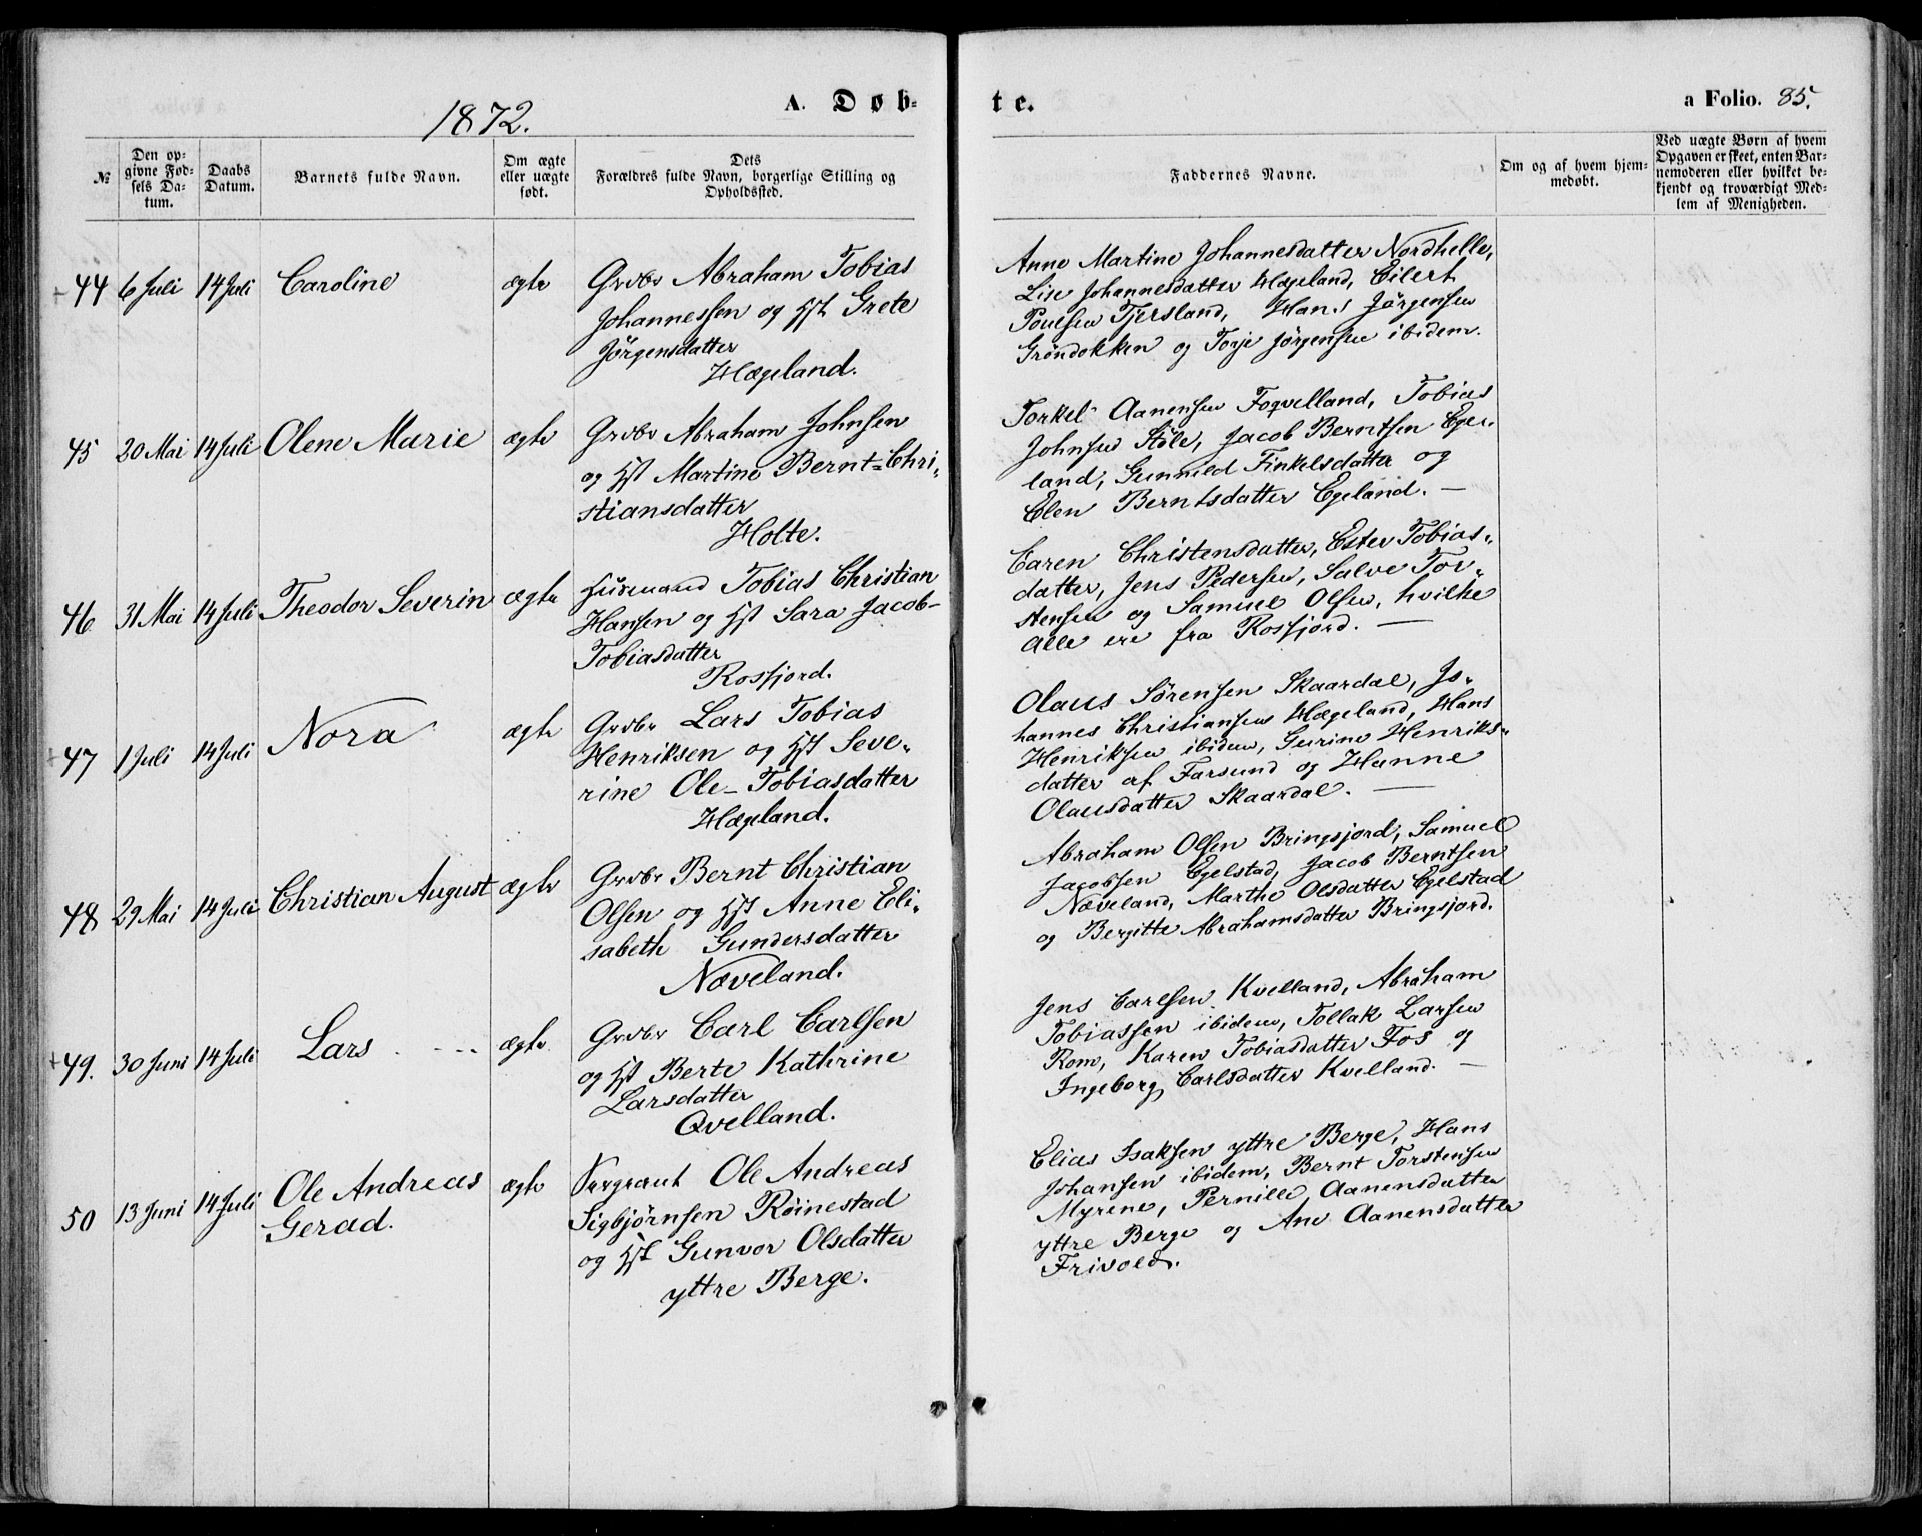 1872.
A. Døb-
te.
a Folio. 85.
№
Den op-
givne Fød-
sels Da-
tum.
Daabs
Datum.
Barnets fulde Navn.
Om ægte
eller uægte
født.
Dets
Forældres fulde Navn, borgerlige Stilling og
Opholdssted.
Faddernes Navne.
Om og af hvem hjem-
medøbt.
Ved uægte Børn af hvem
Opgaven er skeet, enten Bar-
nemoderen eller hvilket be-
kjendt og troværdigt Med-
lem af Menigheden.
44 6 Juli 14 Juli Caroline ægte
Grdbr Abraham Tobias
Johannessen og Hst Grete
Jörgensdatter
Hægeland.
Anne Martine Johannesdatter Nordhelle,
Lise Johannesdatter Hægeland, Eilert
Poulsen Tjersland, Hans Jörgensen
Gröndokken og Torje Jörgensen ibidem.
45 20 Mai 14 Juli Olene Marie ægte
Grdbr Abraham Johnsen
og Hst Martine Bernt-Chri-
stiansdatter
Holte.
Torkel Aanensen Foqvelland, Tobias
Johnsen Stöle, Jacob Berntsen Ege-
land, Gunnild Finkelsdatter og
Elen Berntsdatter Egeland. —
46 31 Mai 14 Juli Theodor Severin ægte
Husmand Tobias Christian
Hansen og Hst Sara Jacob-
Tobiasdatter
Rosfjord.
Caren Christensdatter, Ester Tobias-
datter, Jens Pedersen, Salve Tor-
stensen og Samuel Olsen, hvilke
alle ere fra Rosfjord. —
47 1 Juli 14 Juli Nora ægte
Grdbr Lars Tobias
Henriksen og Hst Seve-
rine Ole-Tobiasdatter
Hægeland.
Olaus Sörensen Skaardal, Jo-
hannes Christiansen Hægeland, Hans
Henriksen ibidem, Gurine Henriks-
datter af Farsund og Hanne
Olausdatter Skaardal. —
48 29 Mai 14 Juli Christian August ægte
Grdbr Bernt Christian
Olsen og Hst Anne Eli-
sabeth Gundersdatter
Næveland.
Abraham Olsen Bringsjord, Samuel
Jacobsen Egelstad, Jacob Berntsen
Næveland, Marthe Olsdatter Egelstad
og Bergitte Abrahamsdatter Bringsjord.
49. 30 Juni 14 Juli Lars ægte
Grdbr Carl Carlsen
og Hst Berte Kathrine
Larsdatter
Qvelland.
Jens Carlsen Kvelland, Abraham
Tobiassen ibidem, Tollak Larsen
Rom, Karen Tobiasdatter Fos og
Ingeborg Carlsdatter Kvelland. —
50 13 Juni 14 Juli Ole Andreas ægte
Gerad.
Sergeant Ole Andreas
Sigbjørnsen Röinestad
og Hst Gunvor Olsdatter
yttre Berge.
Elias Isaksen yttre Berge, Hans
Johansen ibidem, Bernt Torstensen
Myrene, Pernille Aanensdatter
yttre Berge og Ane Aanensdatter
Frivold.